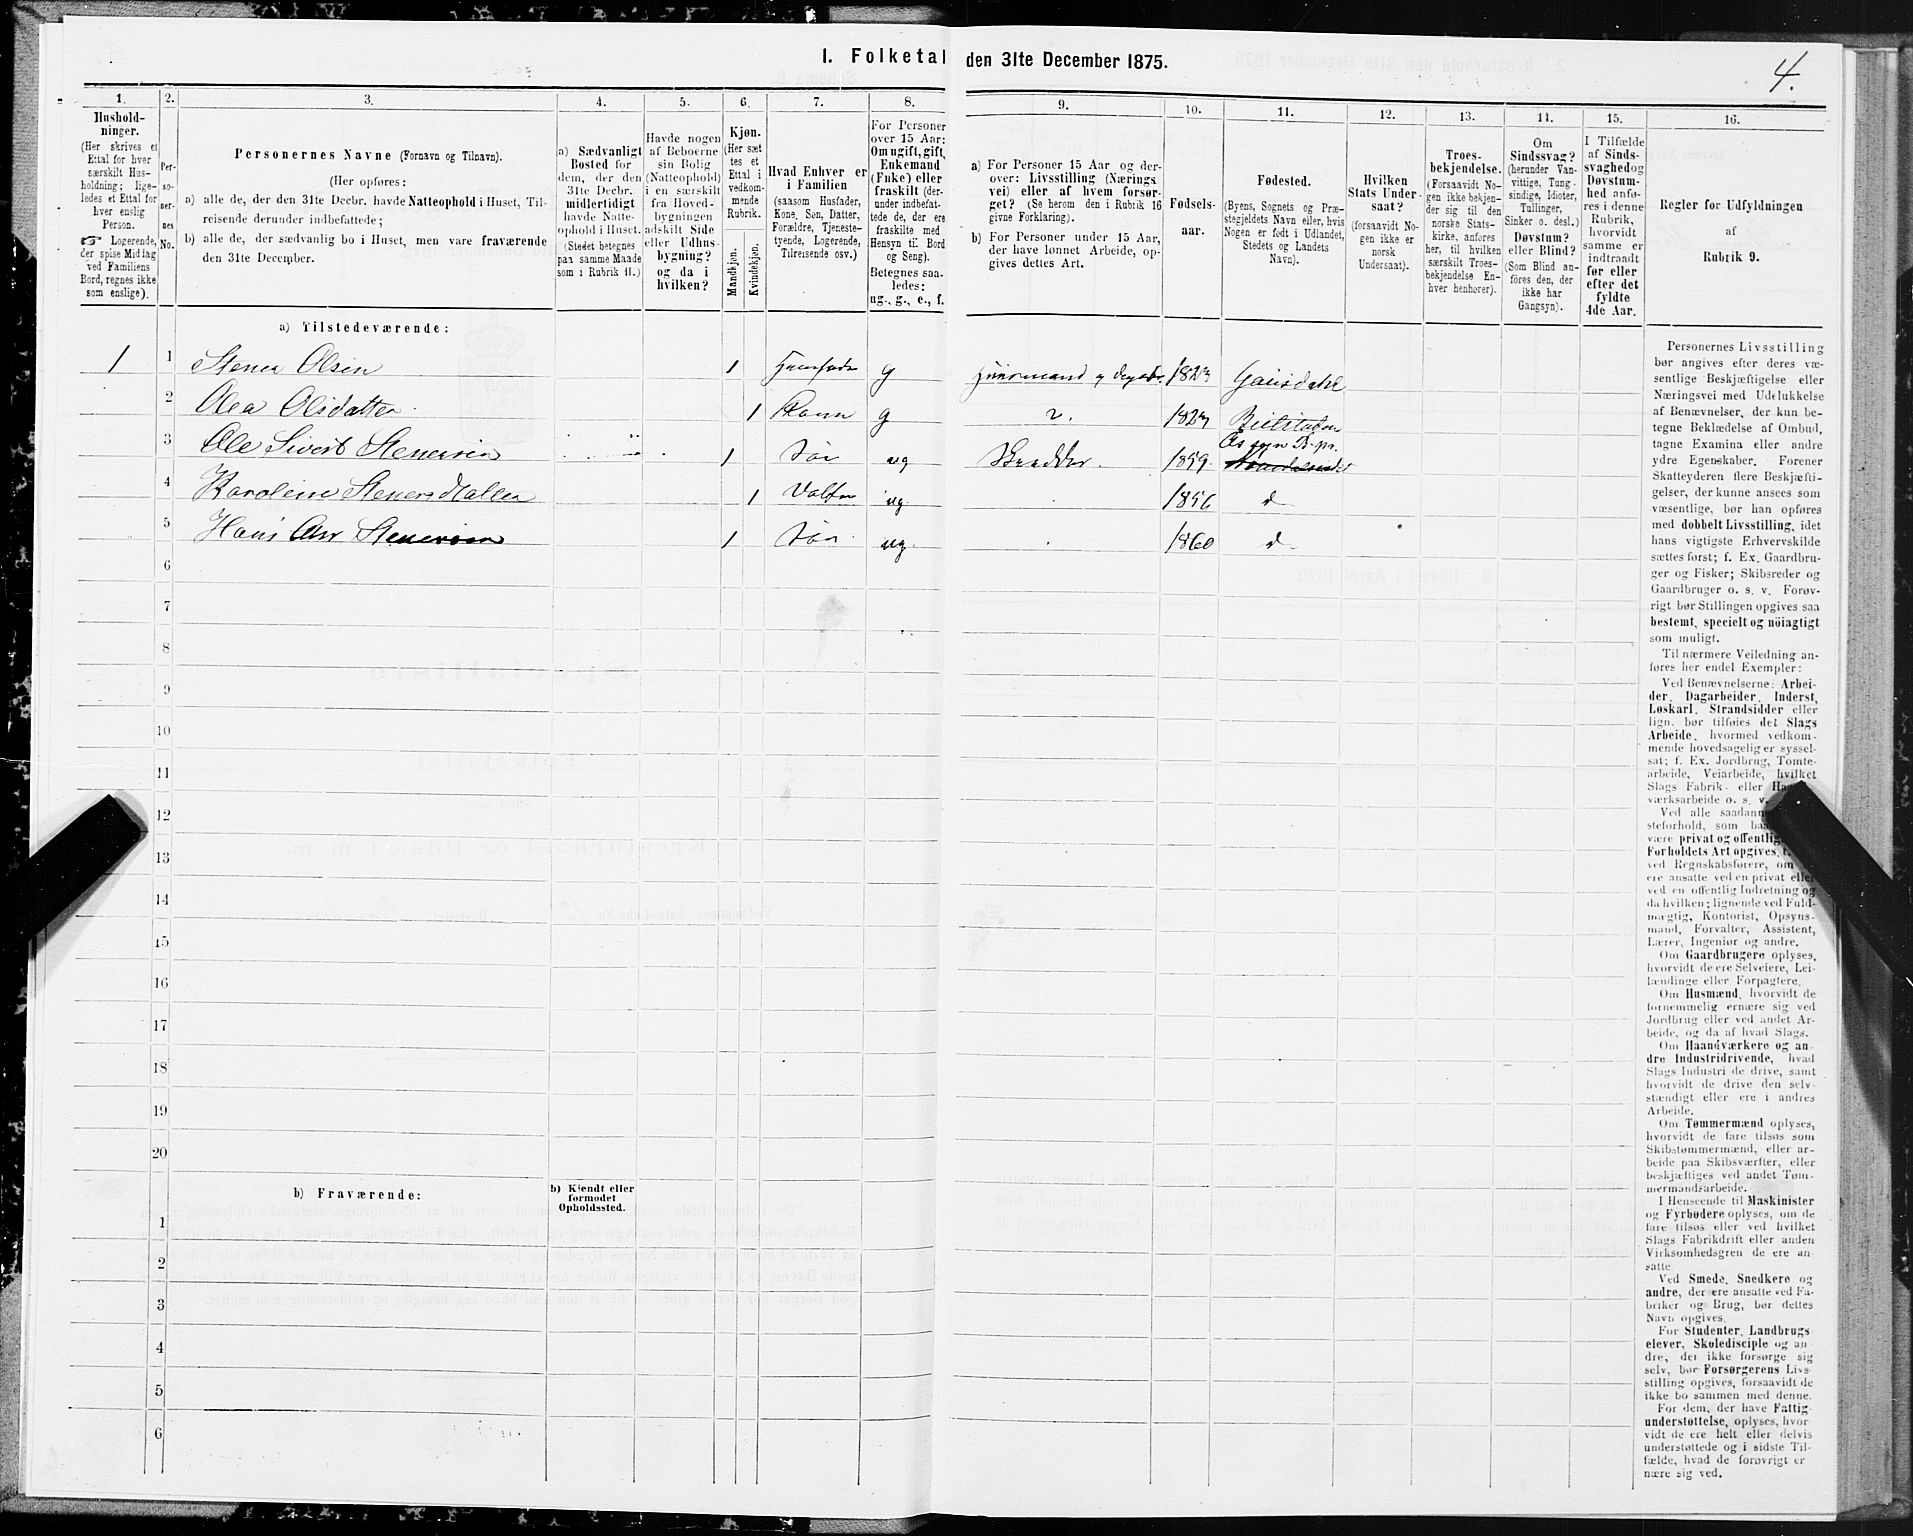 I. Folketal den 31te December 1875.
4.
1. 2. 3. 4. 5. 6. 7. 8. 9. 10. 11. 12. 13. 14. 15. 16.
Hushold-
ninger.
(Her skrives et
Ettal for hver
særskilt Hus-
holdning; lige-
ledes et Ettal for
hver enslig
Person.
☞ Logerende,
der spise Middag
ved Familiens
Bord, regnes ikke
som enslige).
Per-
so-
ner-
nes
No.
Personernes Navne (Fornavn og Tilnavn).
(Her opføres:
a) alle de, der den 31te Decbr. havde Natteophold i Huset, Til-
reisende derunder indbefattede;
b) alle de, der sædvanlig bo i Huset, men vare fraværende
den 31te December.
a) Sædvanligt
Bosted for
dem, der den
31te Decbr.
midlertidigt
havde Natte-
ophold i Huset.
(Stedet betegnes
paa samme Maade
som i Rubrik 11.)
Havde nogen
af Beboerne
sin Bolig
(Natteophold)
i en særskilt
fra Hoved-
bygningen
adskilt Side
eller Udhus-
bygning?
og da i
hvilken?
Kjøn.
(Her sæt
tes et
Ettal i
vedkom-
mende
Rubrik.
Mandkjøn.
Kvindekjøn.
Hvad Enhver er
i Familien
(saasom Husfader,
Kone, Søn, Datter,
Forældre, Tjeneste-
tyende, Logerende,
Tilreisende osv.)
For Personer
over 15 Aar:
Om ugift, gift,
Enkemand
(Enke) eller
fraskilt (der-
under indbefat-
tede de, der ere
fraskilte med
Hensyn til Bord
og Seng).
Betegnes saa-
ledes:
ug., g., e., f.
a) For Personer 15 Aar og der-
over: Livsstilling (Nærings
vei) eller af hvem forsør-
get? (Se herom den i Rubrik 16
givne Forklaring).
b) For Personer under 15 Aar,
der have lønnet Arbeide, op-
gives dettes Art.
Fødsels-
aar.
Fødested.
(Byens, Sognets og Præ-
stegjeldets Navn eller, hvis
Nogen er født i Udlandet,
Stedets og Landets
Navn).
Hvilken
Stats Under-
saat?
(forsaavidt No-
gen ikke er
norsk
Undersaat).
Troes-
bekjendelse.
(Forsaavidt No-
gen ikke bekjen-
der sig til den
norske Stats-
kirke, anføres
her, til hvilken
særskilt Troes-
bekjendelse En-
hver henhører).
Om
Sindssvag?
(herunder Van-
vittige, Tung-
sindige, Idioter,
Tullinger,
Sinker o. desl.)
Døvstum?
eller Blind?
(Som Blind an-
føres den, der
ikke har
Gangsyn).
I Tilfælde
af Sinds-
svaghed og
Døvstum-
hed anfø-
res i denne
Rubrik,
hvorvidt
samme er
indtraadt
før eller
efter det
fyldte
4de Aar.
Regler for Udfyldningen
af
Rubrik 9.
a) Tilstedeværende:
1 1 Stener Olsen 1 g 1823 Gausdahl
2 Olea Olsdatter 1 Kone g 1823
3 Ole Sivert Stenersen 1 Søn ug Skrædder. 1859
4 Karoline 1 ug. 1856 d
5 Hans 1 Søn ug. 1860 d
6
7
8
9
10
11
12
13
14
15
16
17
18
19
20
b) Fraværende:
b) Kjendt eller
formodet
Opholdssted.
1
2
3
4
5
6
Personernes Livsstilling
bør angives efter deres væ-
sentlige Beskjæftigelse eller
Næringsvei med Udelukkelse
af Benævnelser, der kun be-
tegne Beklædelse af Ombud,
tagne Examina eller andre
ydre Egenskaber. Forener
Skatteyderen flere Beskjæfti-
gelser, der kunne ansees som
væsentlige, bør han opføres
med dobbelt Livsstilling, idet
hans vigtigste Erhvervskilde
sættes først; f. Ex. Gaardbru-
ger og Fisker; Skibsreder og
Gaardbruger o. s. v. Forøv-
rigt bør Stillingen opgives saa
bestemt, specielt og nöiagtigt
som muligt.
Til nærmere Veiledning an-
føres her endel Exempler:
Ved Benævnelserne: Arbei-
der, Dagarbeider, Inderst,
Løskarl, Strandsidder eller
lign. bør tilføies det Slags
Arbeide, hvormed vedkom-
mende hovedsagelig er syssel-
sat; f. Ex. Jordbrug, Tomte-
arbeide, Veiarbeide, hvilket
Slags Fabrik- eller
værksarbeide o. s. v.
Ved alle
steforhold, som
være privat og
Forholdets Art opgives,
ved Regnskabsførere, om
ere ansatte ved en privat eller
ved en offentlig Indretning og
da hvilken; lignende ved Fuld-
mægtig, Kontorist, Opsyns-
mand, Forvalter, Assistent,
Lærer, Ingeniør og andre.
Om Gaardbrugere oplyses,
hvorvidt de ere Selveiere, Lei-
lændinge eller Forpagtere.
Om Husmænd, hvorvidt de
fornemmelig ernære sig ved
Jordbrug eller ved andet Ar-
beide, og da af hvad Slags.
Om Haandværkere og an-
dre Industridrivende, hvad
Slags Industri de drive, samt
hvorvidt de drive den selv-
stændigt eller ere i andres
Arbeide.
Om Tømmermænd oplyses,
hvorvidt de fare tilsøs som
Skibstømmermænd, eller ar-
beide paa Skibsværfter, eller
beskjæftiges ved andet Tøm-
mermandsarbeide.
I Henseende til Maskinister
og Fyrbødere oplyses, om de
fare tilsøs eller ved hvilket
Slags Fabrikdrift eller anden
Virksomhedsgren de ere an-
satte.
Ved Smede, Snedkere og
andre, der ere ansatte ved Fa-
briker og Brug, bør dettes
Navn opgives.
For Studenter, Landbrugs-
elever, Skoledisciple og an-
dre, der ikke forsørge sig
selv, bør Forsørgerens Livs-
stilling opgives, forsaavidt de
ikke bo sammen med denne.
For dem, der have Fattig-
understøttelse, oplyses, hvor-
vidt de ere helt eller delvis
understøttede og i sidste Til-
fælde, hvad de forøvrigt er
nære sig ved.